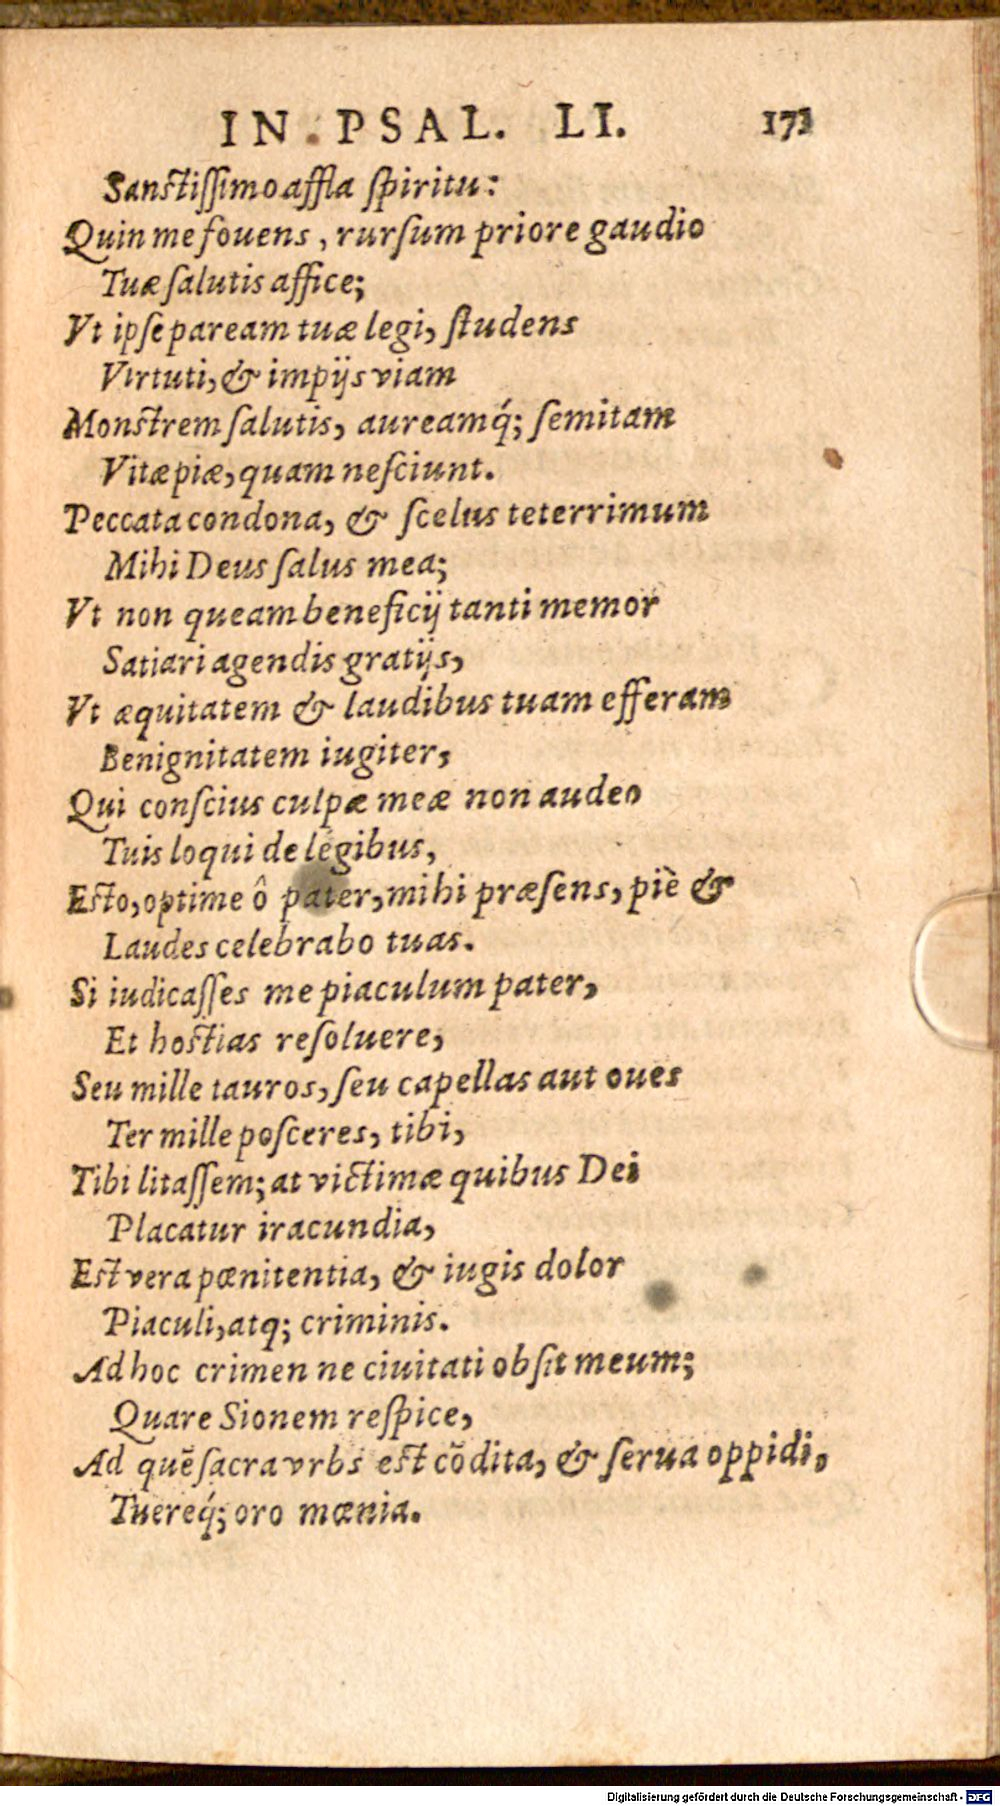 IN PSAL. LI. 173
Sanctiſſimo affla ſpiritu:
Quin me fovens, rurſum priore gaudio
Tuæ ſalutis affice;
Vt ipſe paream tuæ legi, ſtudens
Virtuti, & impijs viam
Monſtrem ſalutis, aureamq́; ſemitam
Vitæ piæ, quam neſciunt.
Peccata condona, & ſcelus teterrimum
Mihi Deus ſalus mea;
Vt non queam beneficij tanti memor
Satiari agendis gratijs,
Vt æquitatem & laudibus tuam efferam
Benignitatem iugiter,
Qui conſcius culpæ meæ non audeo
Tuis loqui de legibus,
Eſto, optime ô pater, mihi præſens, piè &
Laudes celebrabo tuas.
Si iudicaſſes me piaculum pater,
Et hoſtias reſoluere,
Seu mille tauros, ſeu capellas aut oues
Ter mille poſceres, tibi,
Tibi litaſſem; at victimæ quibus Dei
Placatur iracundia,
Eſt vera pœnitentia, & iugis dolor
Piaculi, atq; criminis.
Ad hoc crimen ne ciuitati obſit meum;
Quare Sionem reſpice,
Ad quẽ ſacra vrbs eſt cõdita, & ſerua oppidi,
Tuereq́; oro mœnia.
Digitalisierung gefördert durch die Deutsche Forschungsgemeinschaft - DFG